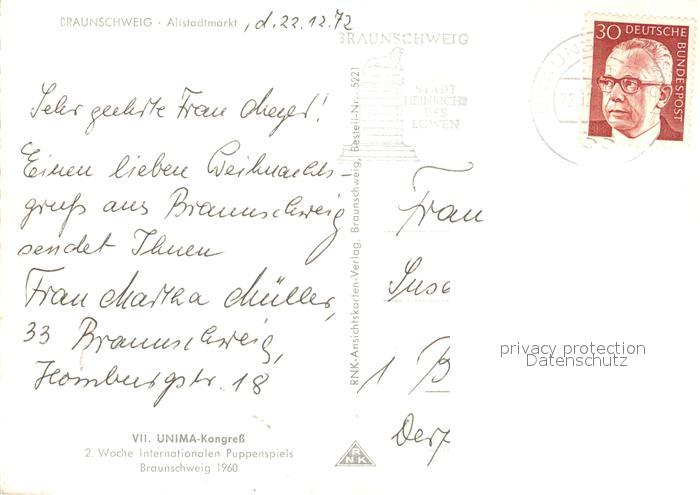 BRAUNSCHWEIG · Altstadtmarkt , d. 22.12.72
Sehr geehrte Frau Meyer!
Einen lieben Weihnachts-
gruß aus Braunschweig
sendet Ihnen
Frau Martha Müller,
33 Braunschweig,
Homburgstr. 18
VII. UNIMA-Kongreß
2. Woche Internationalen Puppenspiels
Braunschweig 1960
RNK-Ansichtskarten-Verlag, Braunschweig, Bestell-Nr. 5221
RNK
BRAUNSCHWEIG
STADT
HEINRICHS
DES
LÖWEN
30 DEUTSCHE
BUNDESPOST
Frau
1 B
privacy protection
Datenschutz